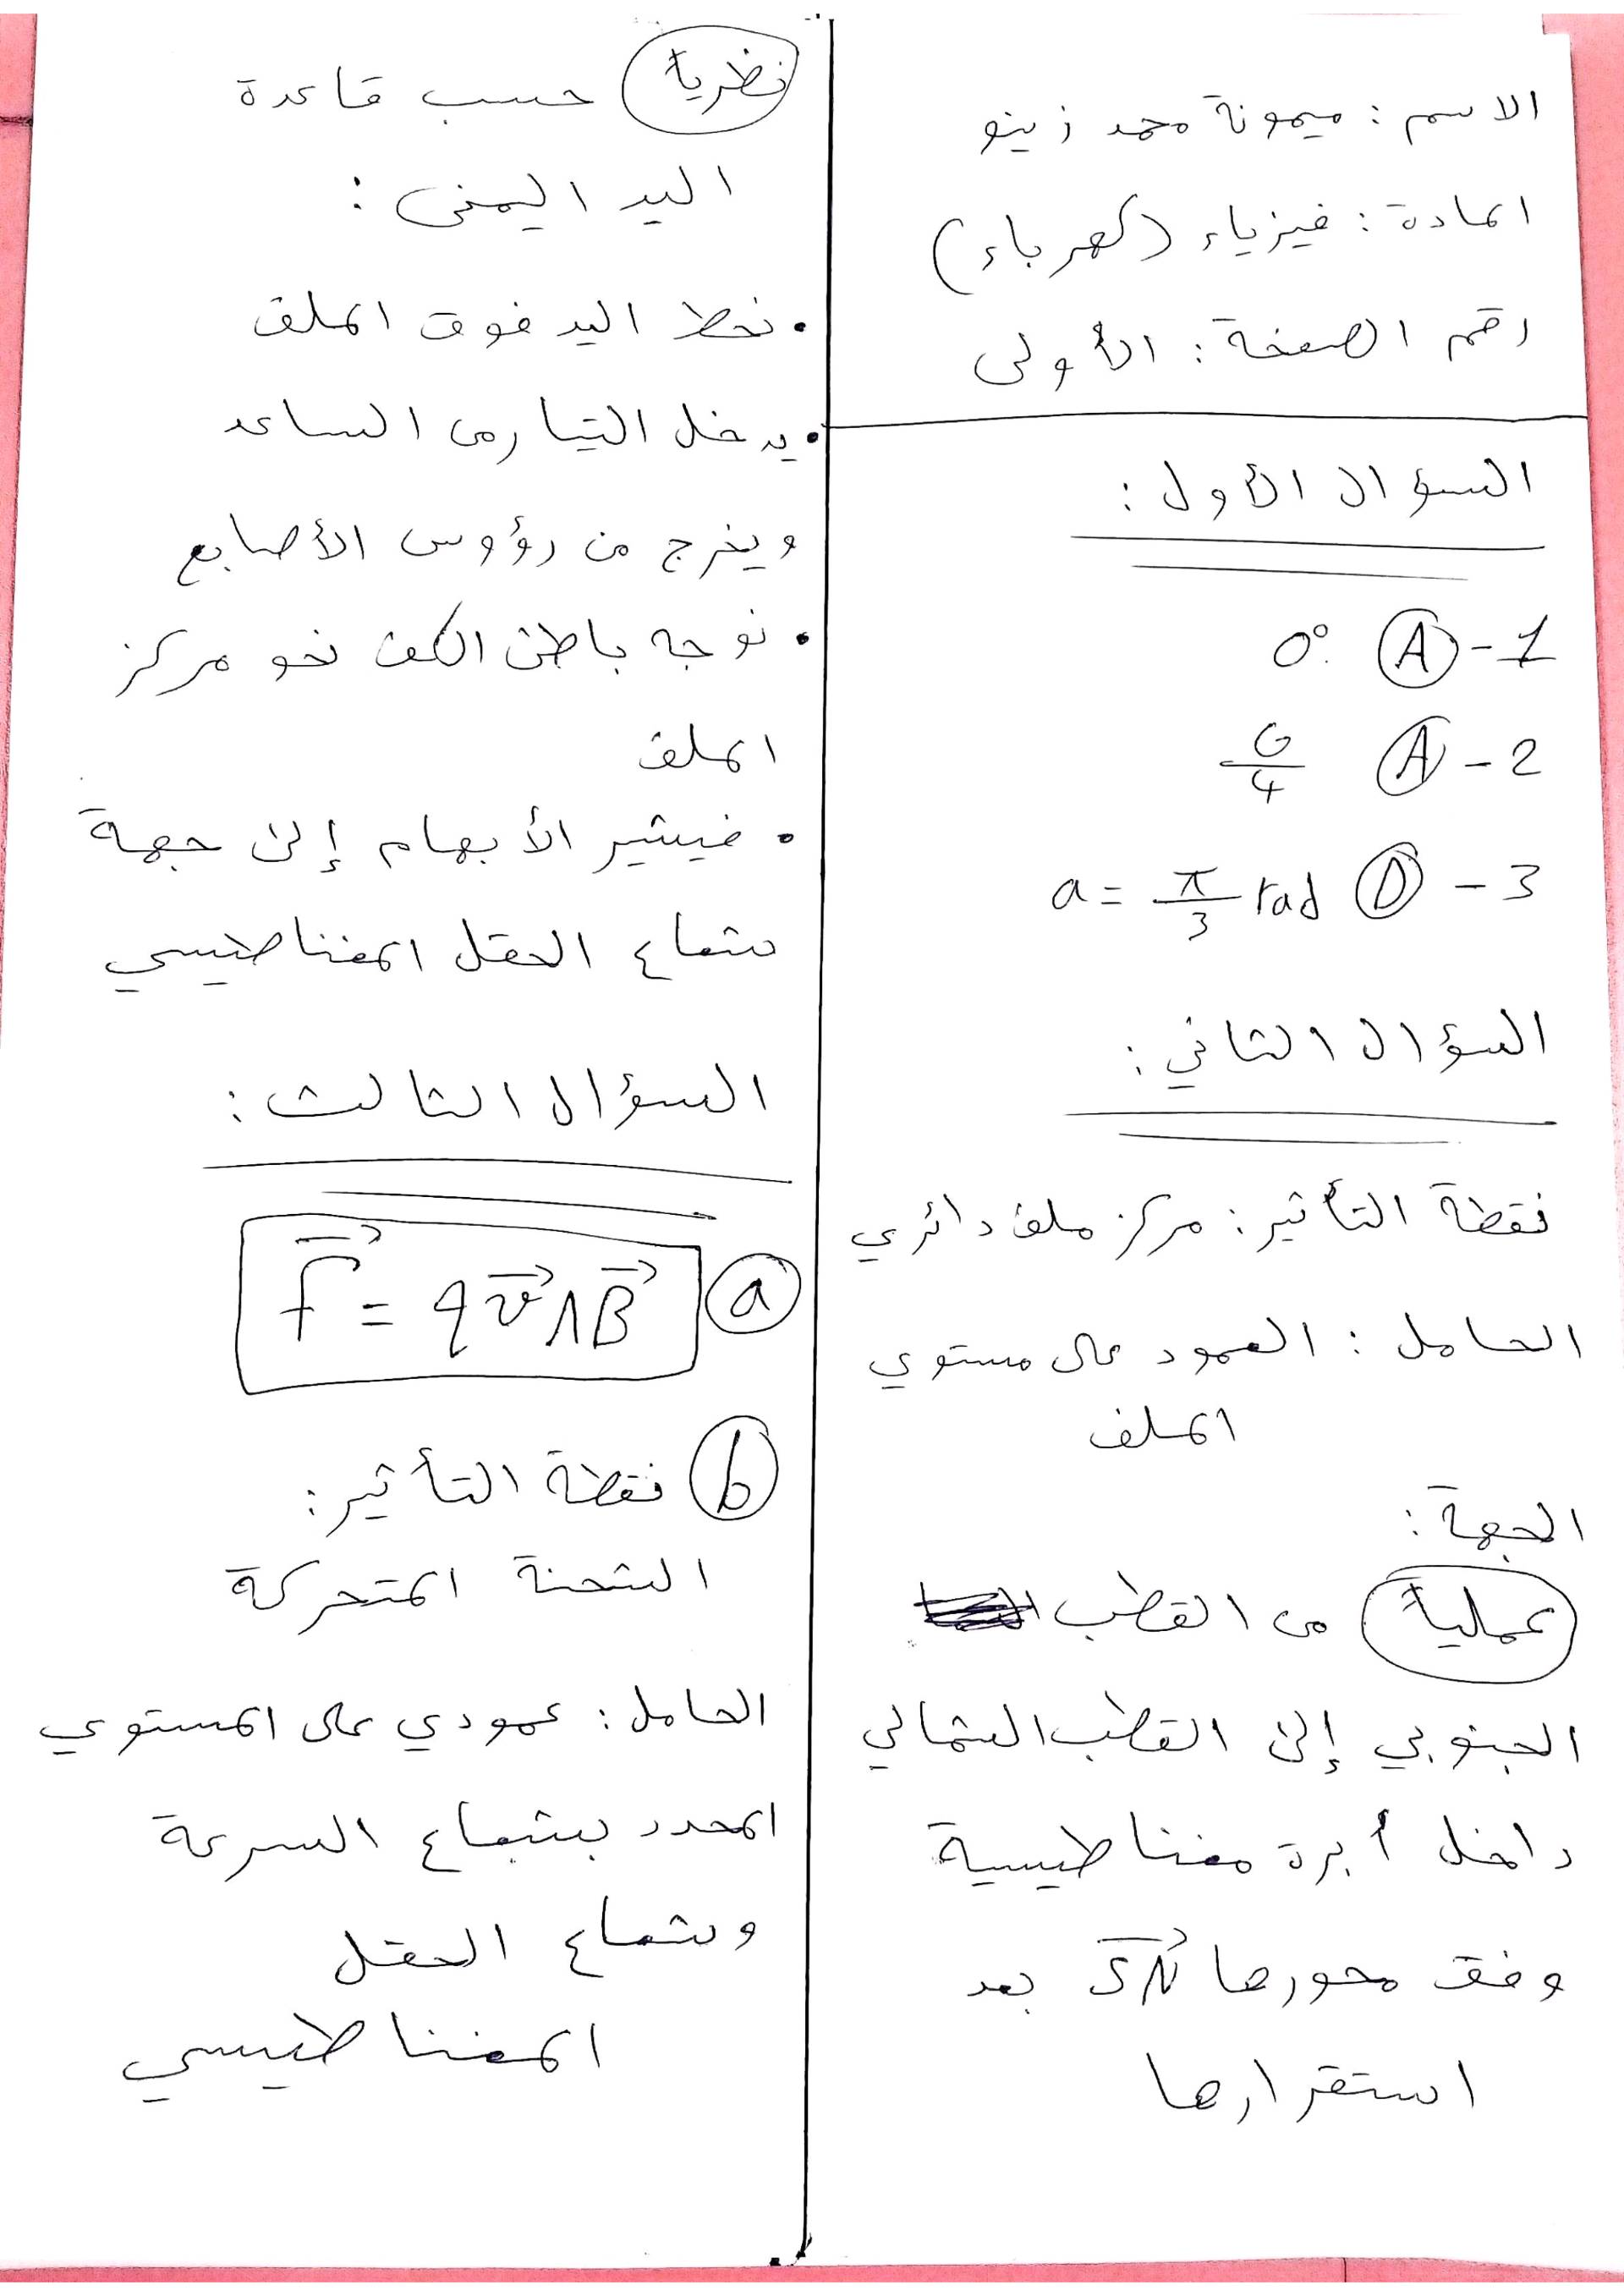 الاسم : ميمونة محمد زينو
المادة : فيزياء (كهرباء)
رقم الصفحة : الأولى
السؤال الأول :
1 - A 0°
2 - A G/4
3 - D a = π/3 rad
السؤال الثاني :
نقطة التأثير : مركز ملف دائري
الحامل : العمود على مستوي
الملف
الجهة :
عملياً من القطب
الجنوبي إلى القطب الشمالي
داخل أبرة مغناطيسية
وفق محورها SN بعد
استقرارها
نظرياً حسب قاعدة
اليد اليمنى :
• نحط اليد فوق الملف
• يدخل التيار من الساعد
ويخرج من رؤوس الأصابع
• نوجه باطن الكف نحو مركز
الملف
• فيشير الأبهام إلى جهة
شعاع الحقل المغناطيسي
السؤال الثالث :
a f⃗ = q v⃗ ∧ B⃗
b نقطة التأثير :
الشحنة المتحركة
الحامل : عمودي على المستوي
المحدد بشعاع السرعة
وشعاع الحقل
المغناطيسي